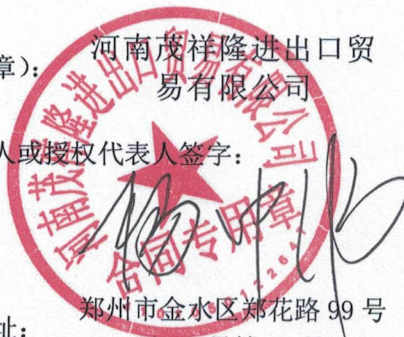 章):
河南茂祥隆进出口贸
易有限公司
人或授权代表人签字:
河南茂祥隆进出口贸易有限公司
合同专用章
郑州市金水区郑花路 99 号
址: